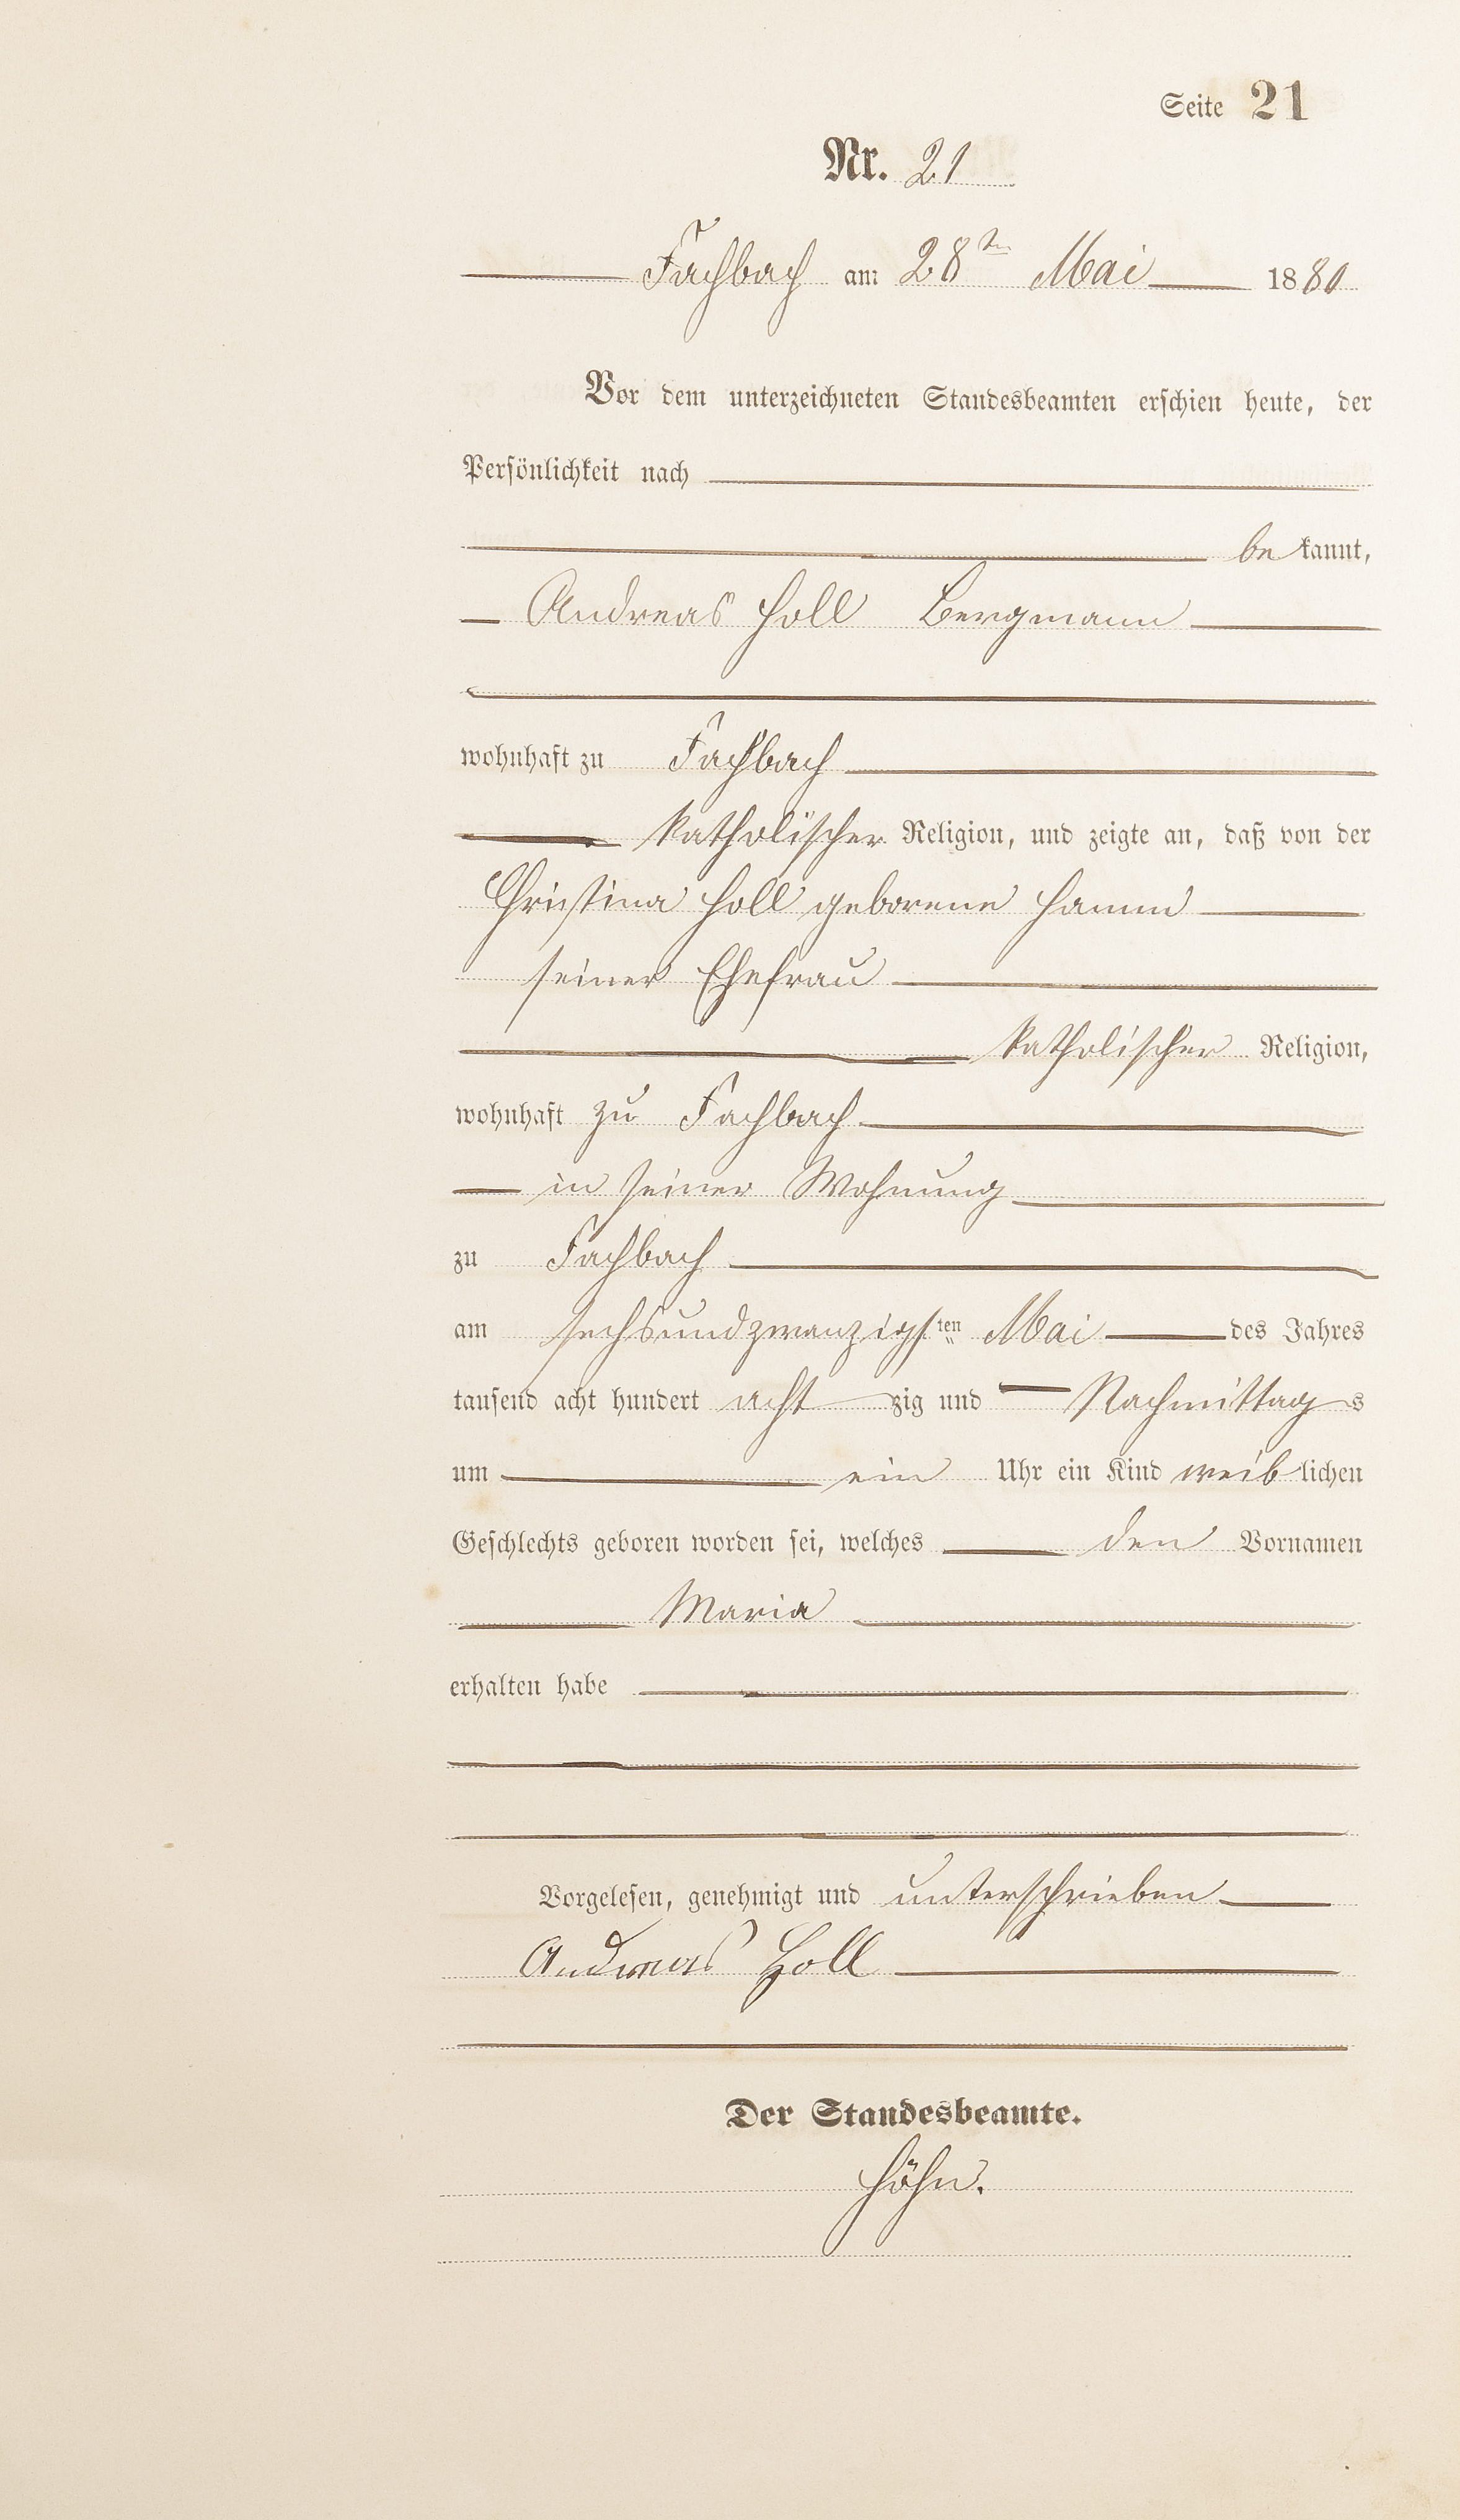 Seite 21
Nr. 21
Fachbach am 28ten Mai 1880
Vor dem unterzeichneten Standesbeamten erschien heute, der
Persönlichkeit nach
be kannt,
Andreas Holl Bergmann
wohnhaft zu Fachbach
katholischer Religion, und zeigte an, daß von der
Christina Holl geborene Hamm
seiner Ehefrau
katholischer Religion,
wohnhaft zu Fachbach
in seiner Wohnung
zu Fachbach
am sechsundzwanzigsten Mai des Jahres
tausend acht hundert acht zig und Nachmittag s
um ein Uhr ein Kind weib lichen
Geschlechts geboren worden sei, welches den Vornamen
Maria
erhalten habe
Vorgelesen, genehmigt und unterschrieben
Andreas Holl
Der Standesbeamte.
Höhn.